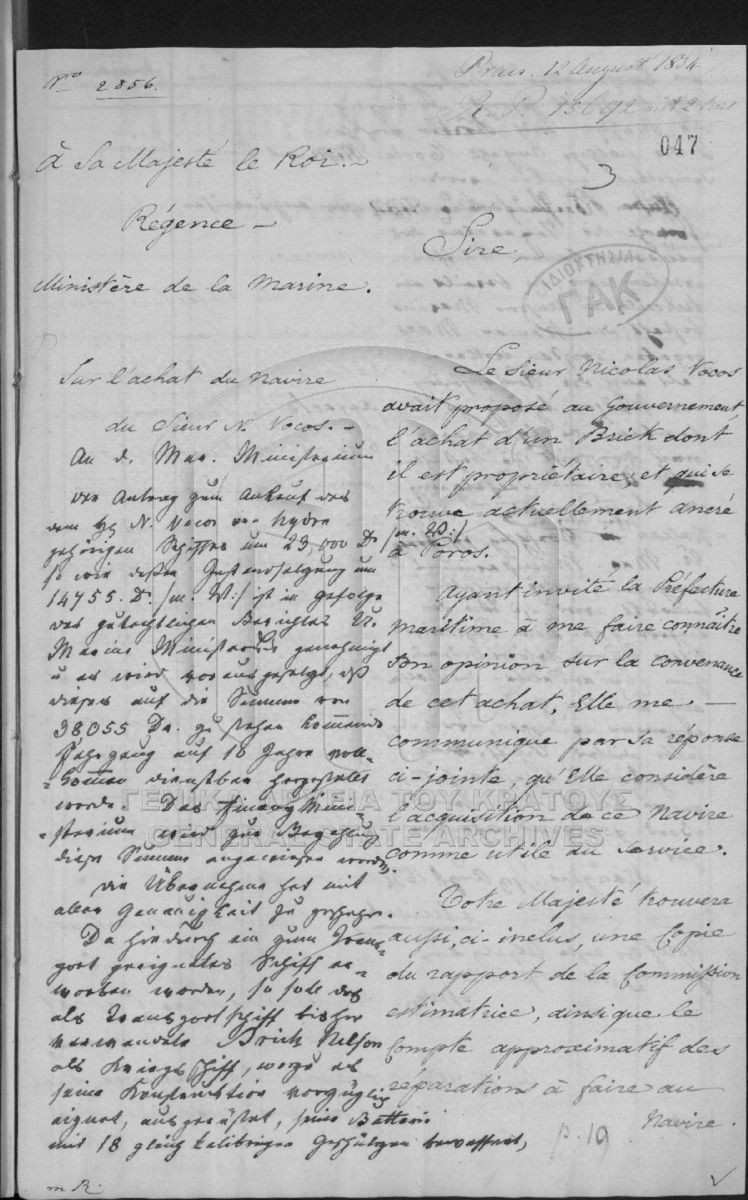 No 2856.
Praes. 12 August 1834
R. P. 15692 mit 2 Beil
047
à Sa Majesté le Roi.
3
Régence
Sire,
Ministère de la Marine.
ΓΑΚ
Sur l'achat du Navire
du Sieur N. Vocos.
An d. Mar. Ministerium
Der Antrag zum Ankauf des
dem H. N. Vocos von Hydra
gehörigen Schiffes um 23,000 Dr
so wie dessen Instandsetzung um
14755. Dr. /m. W:/ ist in Gefolge
des gutachtlichen Berichtes
Marine Ministeriums genehmigt
u es wird vorausgesetzt, daß
dieses auf die Summe von
38055 Dr. zu stehen kommende
Fahrzeug auf 10 Jahre voll-
kommen dienstbar hergestellt
werde. Das Finanz Mini-
sterium wird zur Bezahlung
dieser Summe angewiesen werden.
Die Übernahme hat mit
aller Genauigkeit zu geschehen.
Da hiedurch ein zum Trans-
port geeignetes Schiff er-
worben worden, so soll das
als Transportschiff bisher
verwendete Brick Nelson
als Kriegsschiff, wozu es
seine Konstruktion vorzüglich
eignet, ausgerüstet, seine Batterie
mit 18 gleich kalibrigen Geschützen bewaffnet,
m R.
Le Sieur Nicolas Vocos
avait proposé au Gouvernement
l'achat d'un Brick dont
il est propriétaire, et qui se
trouve actuellement ancré
/m. W:/
à Poros.
Ayant invité la Préfecture
maritime à me faire connaître
son opinion sur la convenance
de cet achat, Elle me
communique par sa réponse
ci-jointe qu'Elle considère
l'acquisition de ce Navire
comme utile au service.
Votre Majesté trouvera
aussi, ci-inclus, une Copie
du rapport de la Commission
estimatrice, ainsi que le
Compte approximatif des
réparations à faire au
Navire.
p. 19
ΓΕΝΙΚΑ ΑΡΧΕΙΑ ΤΟΥ ΚΡΑΤΟΥΣ
GENERAL STATE ARCHIVES